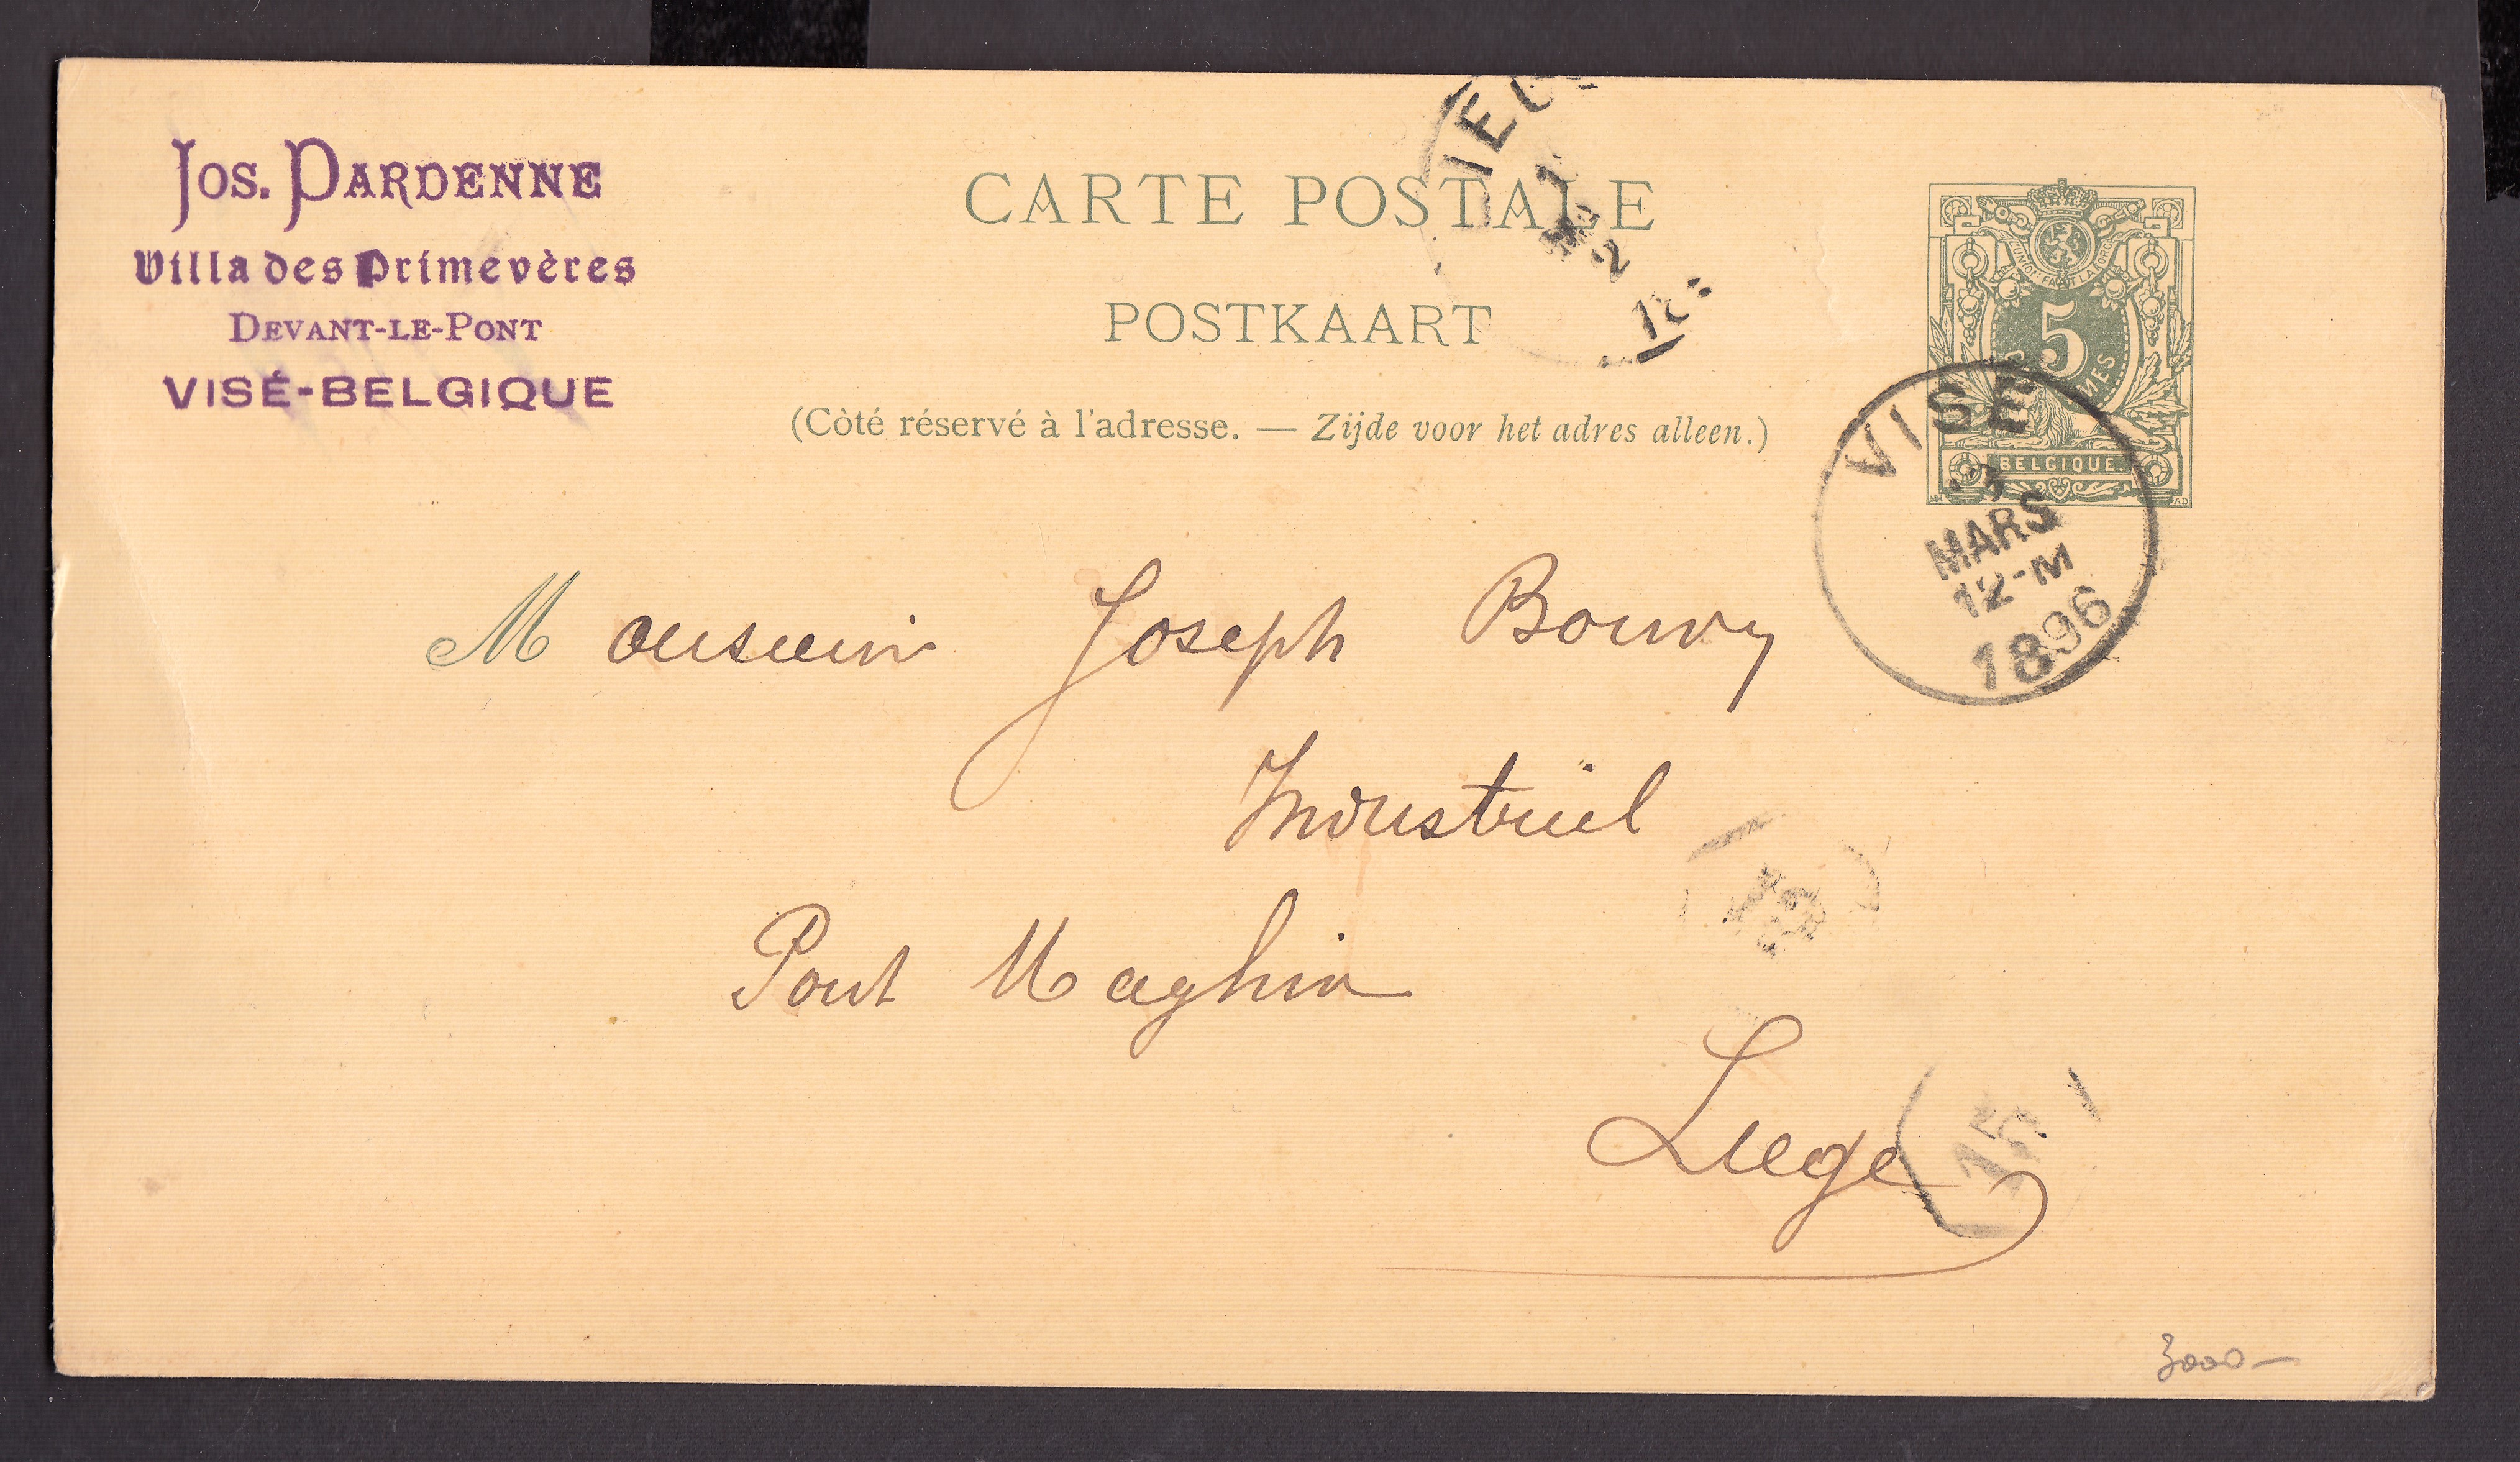 Jos. Pardenne
Villa des Primevères
Devant-le-Pont
VISÉ-BELGIQUE
CARTE POSTALE
POSTKAART
(Côté réservé à l'adresse. — Zijde voor het adres alleen.)
L'UNION FAIT LA FORCE
5
BELGIQUE.
VISÉ
3
MARS
12-M
1896
Monsieur Joseph Bouvy
Industriel
Pont Maghin
Liege
15
3000-